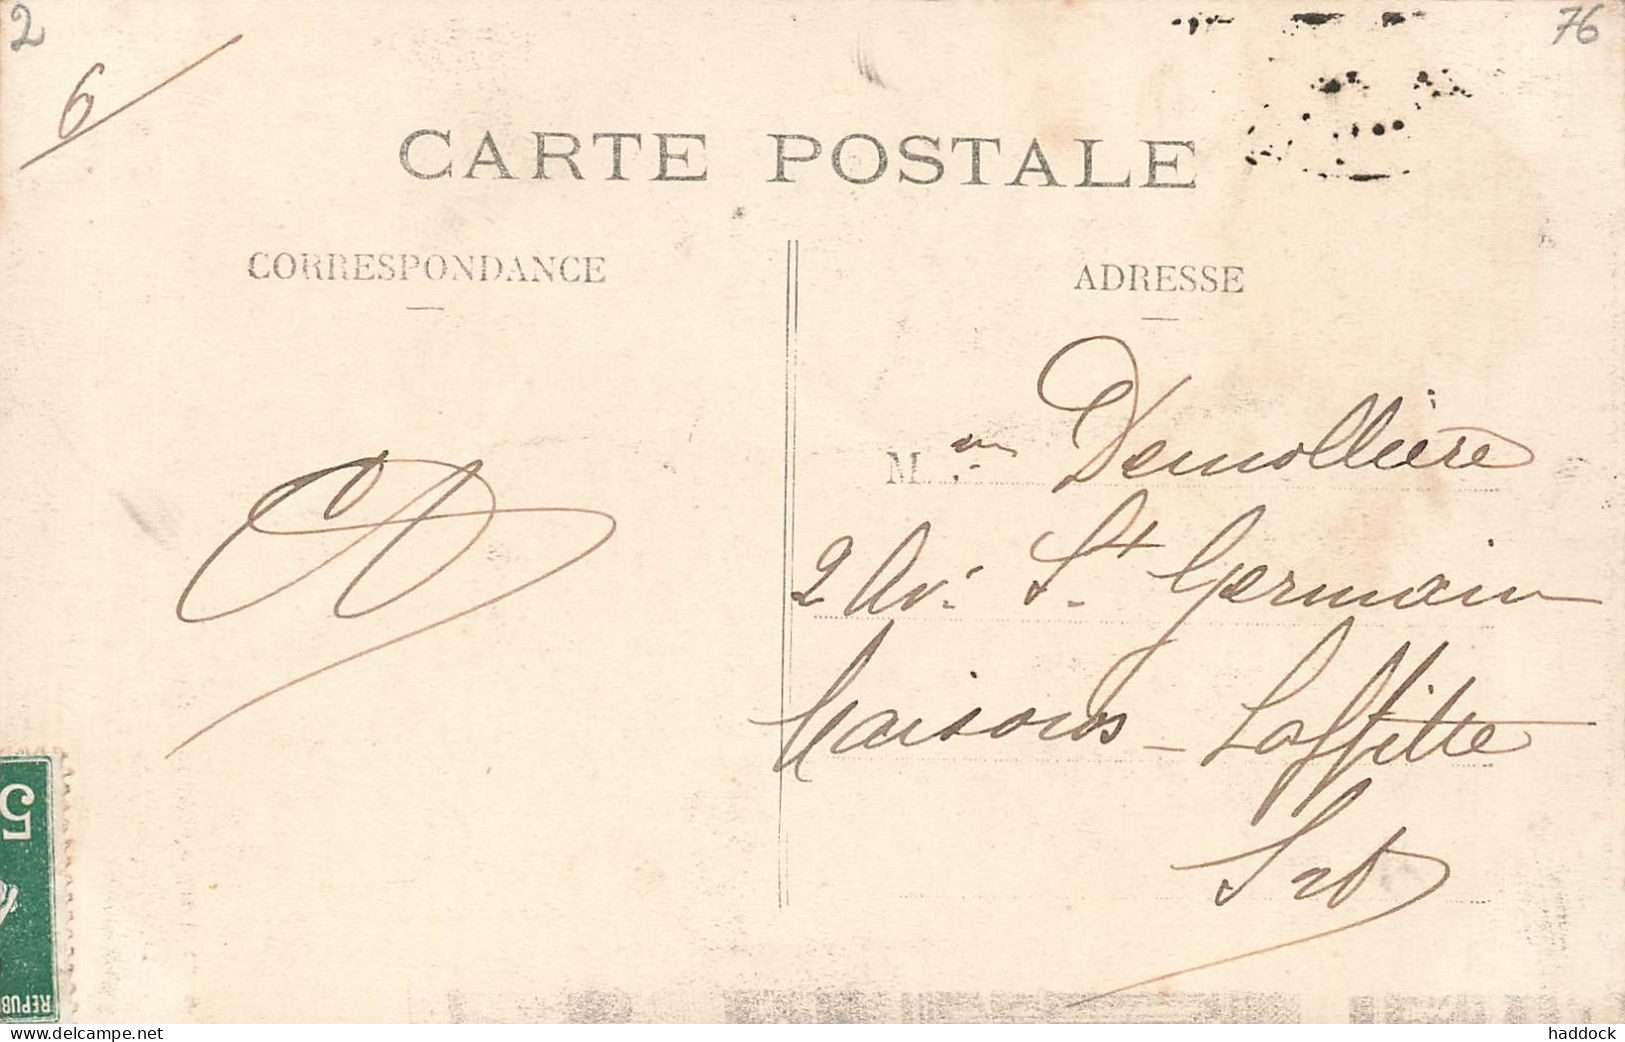 2
76
6
CARTE POSTALE
CORRESPONDANCE
ADRESSE
M. Demollière
2 Av. St Germain
Maisons-Laffitte
5
REPUB
www.delcampe.net
haddock